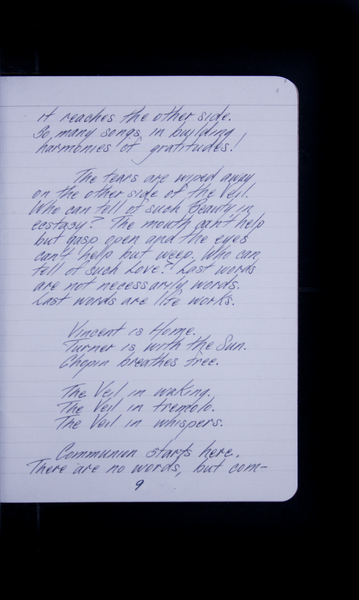 it reaches the other side.
So many songs in building
harmonies of gratitudes!
The tears are wiped away
on the other side of the Veil.
Who can tell of such Beauty in
ecstasy? The mouth can't help
but gasp open and the eyes
can't help but weep. Who can
tell of such Love? Last words
are not necessarily words.
Last words are life works.
Vincent is Home.
Turner is with the Sun.
Chopin breathes free.
The Veil in waking.
The Veil in tremolo.
The Veil in whispers.
Communion starts here.
There are no words, but com-
9